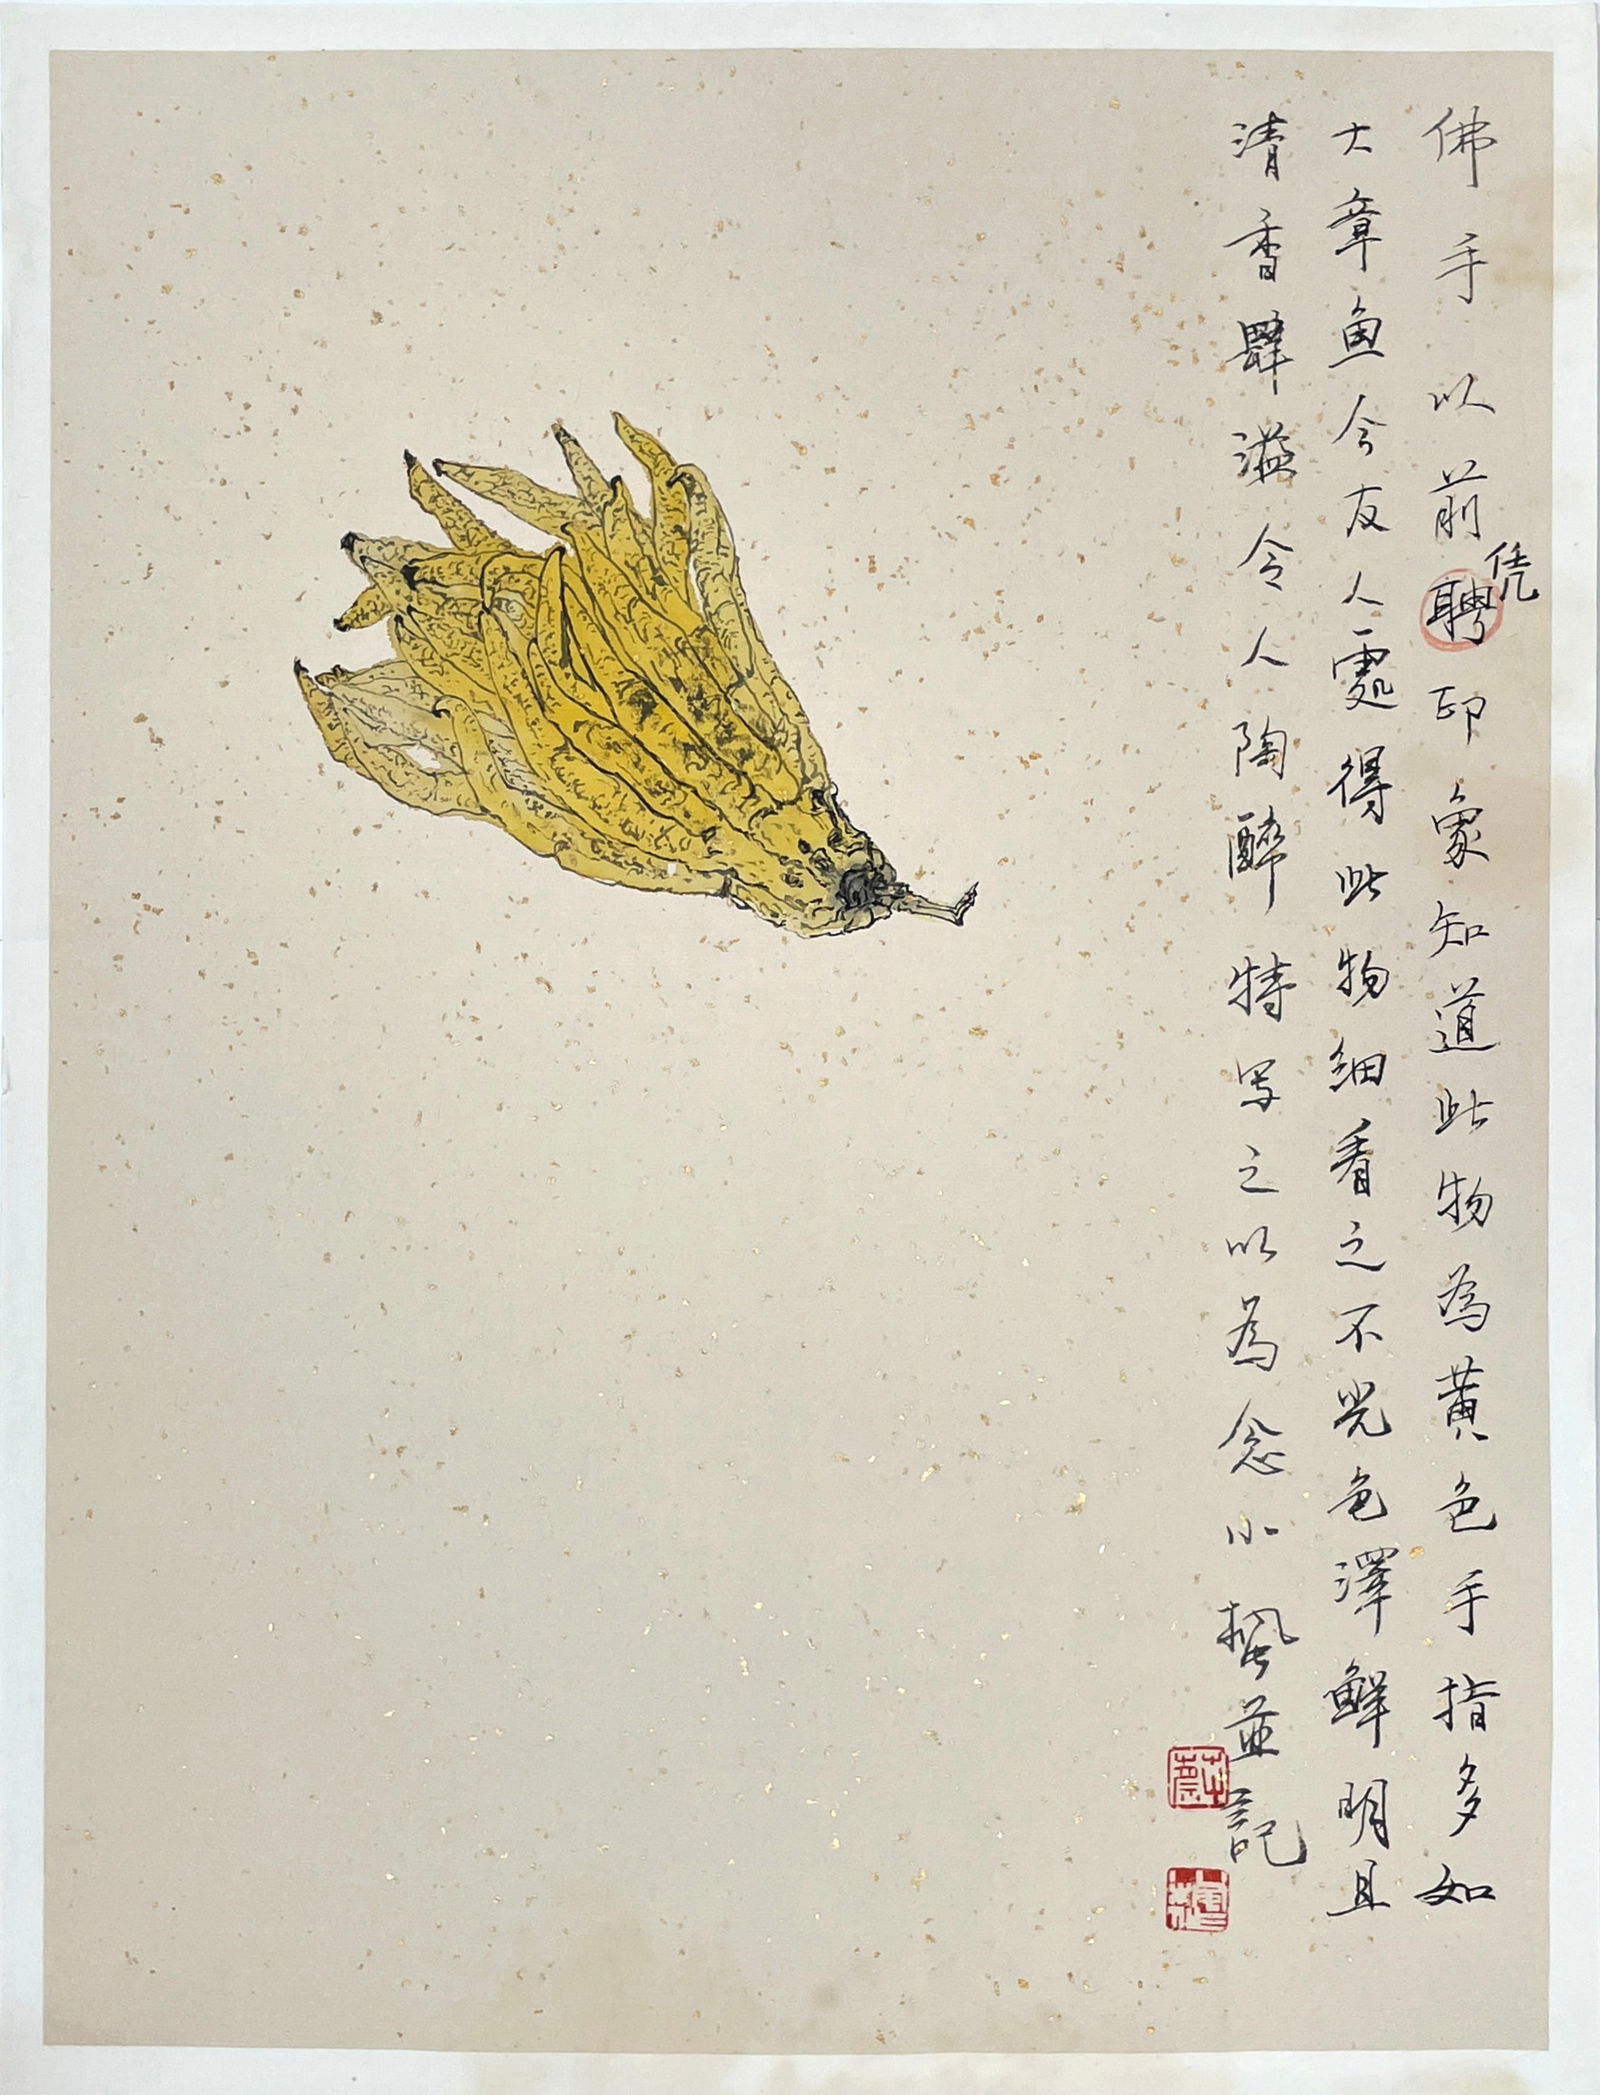 佛手以前聘印象知道此物為黄色手指多如
凭
大章鱼今友人處得此物细看之不光色澤鲜明且
清香肆溢令人陶醉特写之以為念小蜇並記